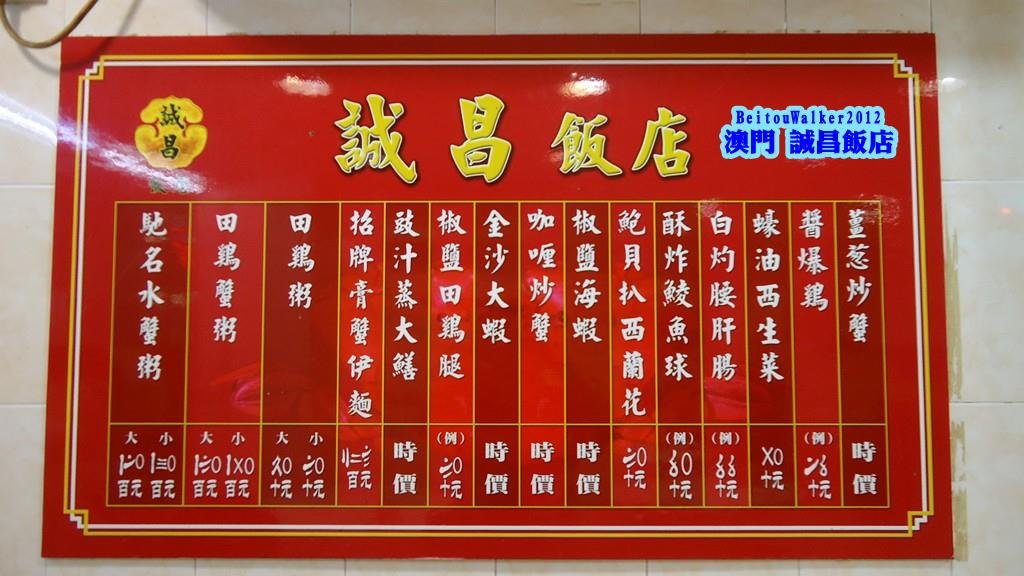 BeitouWalker2012
澳門 誠昌飯店
誠昌
誠昌飯店
薑葱炒蟹
時價
醬爆鷄
(例)
十元
蠔油西生菜
〤0
十元
白灼腰肝腸
(例)
十元
酥炸鯪魚球
(例)
十元
鮑貝扒西蘭花
十元
椒鹽海蝦
時價
咖喱炒蟹
時價
金沙大蝦
時價
椒鹽田鷄腿
(例)
十元
豉汁蒸大鱔
時價
招牌膏蟹伊麵
百元
田鷄粥
大 小
十元 十元
田鷄蟹粥
大 小
〡〤0
百元 百元
馳名水蟹粥
大 小
〡〣0
百元 百元